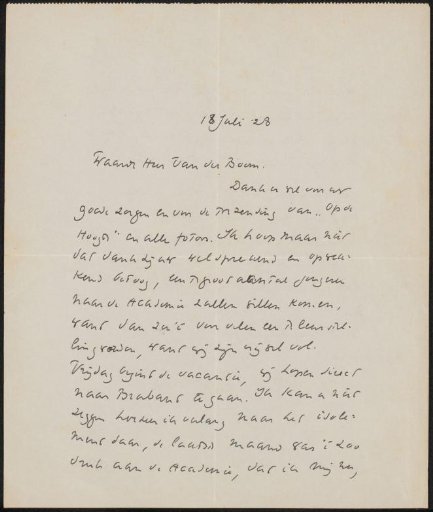 18 Juli '28
Waarde Heer Van der Boom.
Dank u wel voor uw
goede zorgen en voor de toezending van „Op de
Hoogte" en alle foto's. Ik hoop maar niet
dat dank zij uw welsprekend en opwek-
kend betoog, een groot aantal jongeren
naar de Academie zullen willen komen,
want dan zou 't voor velen een teleurstel-
ling worden, want wij zijn vrijwel vol.
Vrijdag begint de vacantie, wij hopen direct
naar Brabant te gaan. Ik kan u niet
zeggen hoezeer ik verlang naar het
daar, de laatste maand was 't zoo
druk aan de Academie, dat ik